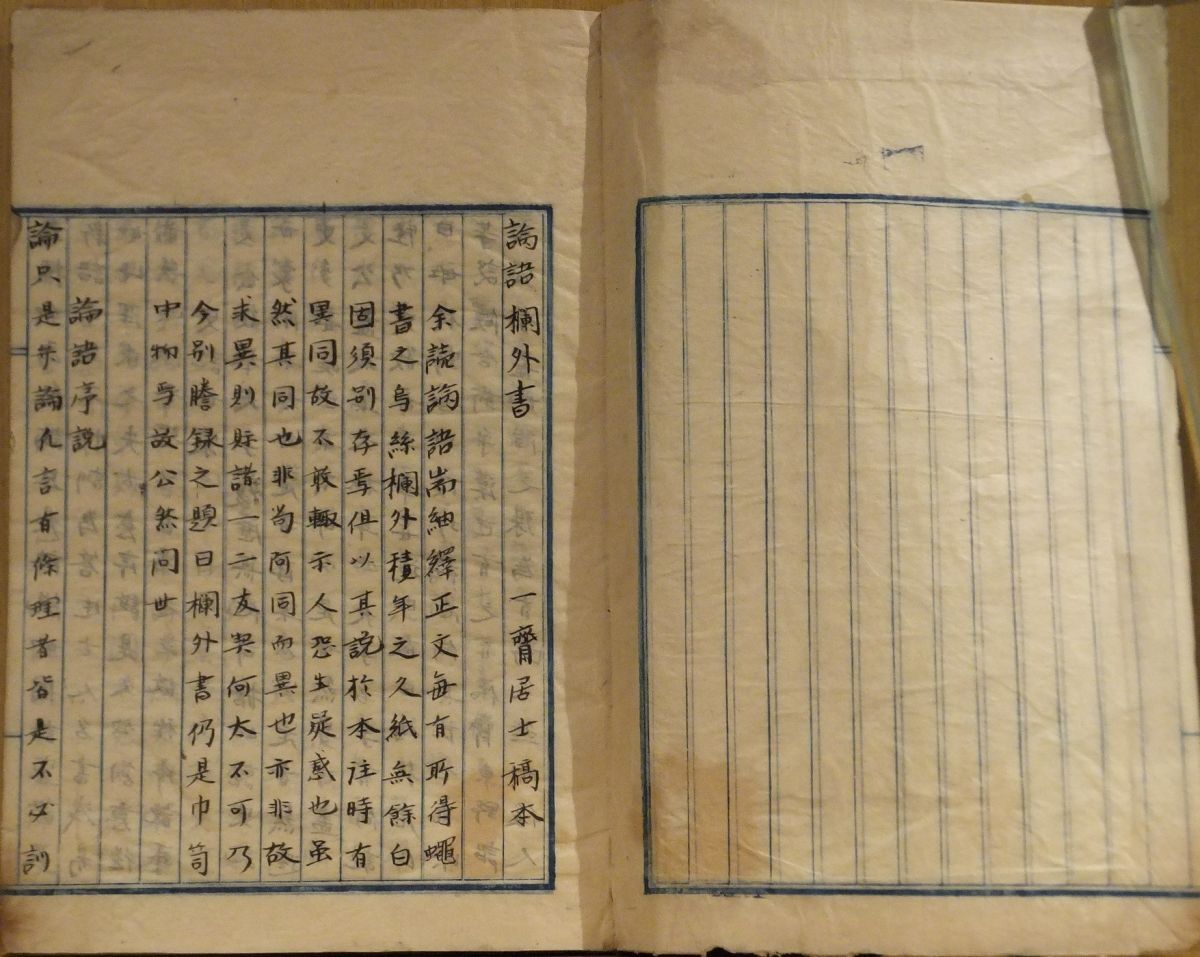 論語欄外書 一齋居士稿本
余読論語耑紬繹正文毎有所得蠅
書之烏絲欄外積年之久紙無餘白
固須別存焉但以其説於本注時有
異同故不敢輙示人恐生疑惑也虽
然其同也非苟阿同而異也亦非故
求異則眎諸一二友契何太不可乃
今別謄録之題曰欄外書仍是巾笥
中物焉敢公然問世
論語序説
論只是弁論凡言有條理者皆是不必訓